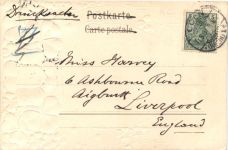 Drucksache
Postkarte
Carte postale.
Miss Harvey
6 Ashbourne Road
Aigburth
Liverpool
England